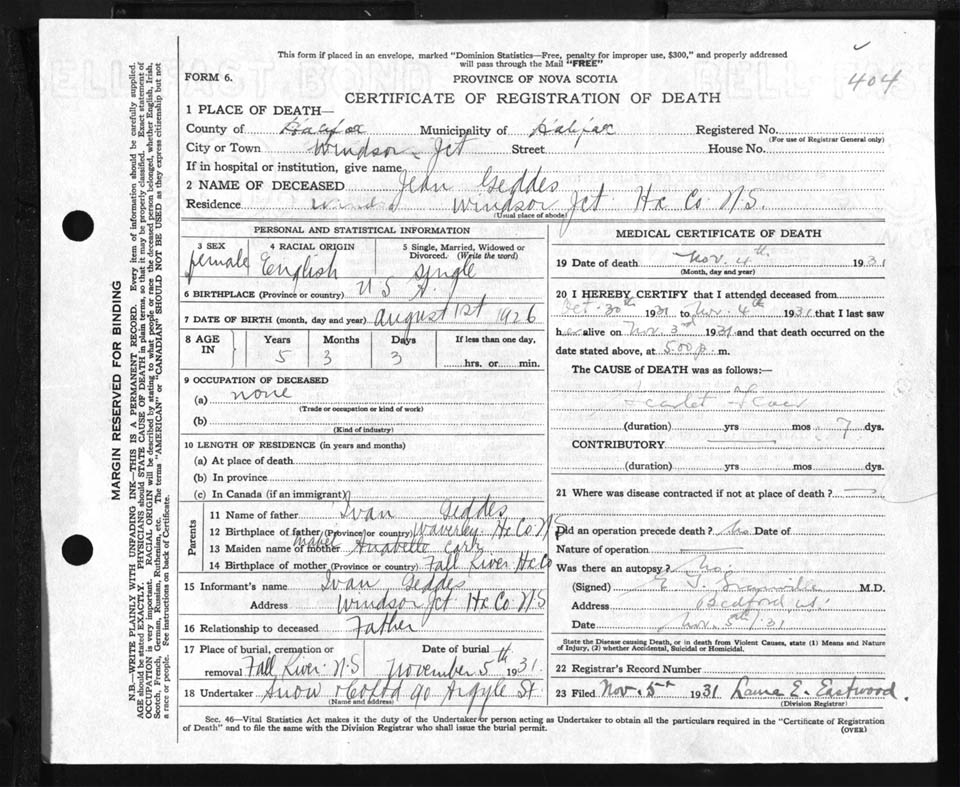 This form if placed in an envelope, marked "Dominion Statistics—Free, penalty for improper use, $300," and properly addressed
will pass through the Mail "FREE"
404
FORM 6.
PROVINCE OF NOVA SCOTIA
CERTIFICATE OF REGISTRATION OF DEATH
1 PLACE OF DEATH—
County of Halifax Municipality of Halifax Registered No.
(For use of Registrar General only)
City or Town Windsor Jct Street House No.
If in hospital or institution, give name
2 NAME OF DECEASED Jean Geddes
Residence Windsor Jct Hx Co N.S.
(Usual place of abode)
PERSONAL AND STATISTICAL INFORMATION
3 SEX 4 RACIAL ORIGIN 5 Single, Married, Widowed or
Divorced. (Write the word)
female English single
6 BIRTHPLACE (Province or country) U S A.
7 DATE OF BIRTH (month, day and year) August 1st 1926
8 AGE IN Years Months Days If less than one day,
5 3 3 hrs. or min.
9 OCCUPATION OF DECEASED
(a) none
(Trade or occupation or kind of work)
(b)
(Kind of industry)
10 LENGTH OF RESIDENCE (in years and months)
(a) At place of death
(b) In province
(c) In Canada (if an immigrant)
Parents
11 Name of father Ivan Geddes
12 Birthplace of father (Province or country) Waverley Hx Co N.S
13 Maiden name of mother Mabel Anabelle
14 Birthplace of mother (Province or country) Fall River Hx Co
15 Informant's name Ivan Geddes
Address Windsor Jct Hx Co N S
16 Relationship to deceased Father
17 Place of burial, cremation or Date of burial
removal Fall River N.S November 5th 1931.
18 Undertaker Snow 90 Argyle St.
(Name and address)
MEDICAL CERTIFICATE OF DEATH
19 Date of death Nov. 4th 1931
(Month, day and year)
20 I HEREBY CERTIFY that I attended deceased from
Oct. 30th 1931 to Nov. 4th 1931 that I last saw
her alive on Nov. 3rd 1931 and that death occurred on
date stated above, at 5.00 p. m.
The CAUSE of DEATH was as follows:—
Scarlet Fever
(duration) yrs mos 7 dys.
CONTRIBUTORY
(duration) yrs mos dys.
21 Where was disease contracted if not at place of death?
Did an operation precede death? No Date of
Nature of operation
Was there an autopsy? No.
(Signed) M.D.
Address Bedford
Date Nov. 5th/31
State the Disease causing Death, or in death from Violent Causes, state (1) Means and Nature
of Injury, (2) whether Accidental, Suicidal or Homicidal.
22 Registrar's Record Number
23 Filed Nov. 5th 1931 Laura E. Eastwood.
(Division Registrar)
Sec. 46—Vital Statistics Act makes it the duty of the Undertaker or person acting as Undertaker to obtain all the particulars required in the "Certificate of Registration
of Death" and to file the same with the Division Registrar who shall issue the burial permit.
(OVER)
MARGIN RESERVED FOR BINDING
N.B.—WRITE PLAINLY WITH UNFADING INK—THIS IS A PERMANENT RECORD. Every item of information should be carefully supplied.
AGE should be stated EXACTLY. PHYSICIANS should STATE CAUSE OF DEATH in plain terms, so that it may be properly classified. Exact statement of
OCCUPATION is very important. RACIAL ORIGIN will be described by stating to what people or race the deceased person belonged, whether English, Irish,
Scotch, French, German, Russian, Ruthenian, etc. The terms "AMERICAN" or "CANADIAN" SHOULD NOT BE USED as they express citizenship but not
a race or people. See instructions on back of Certificate.